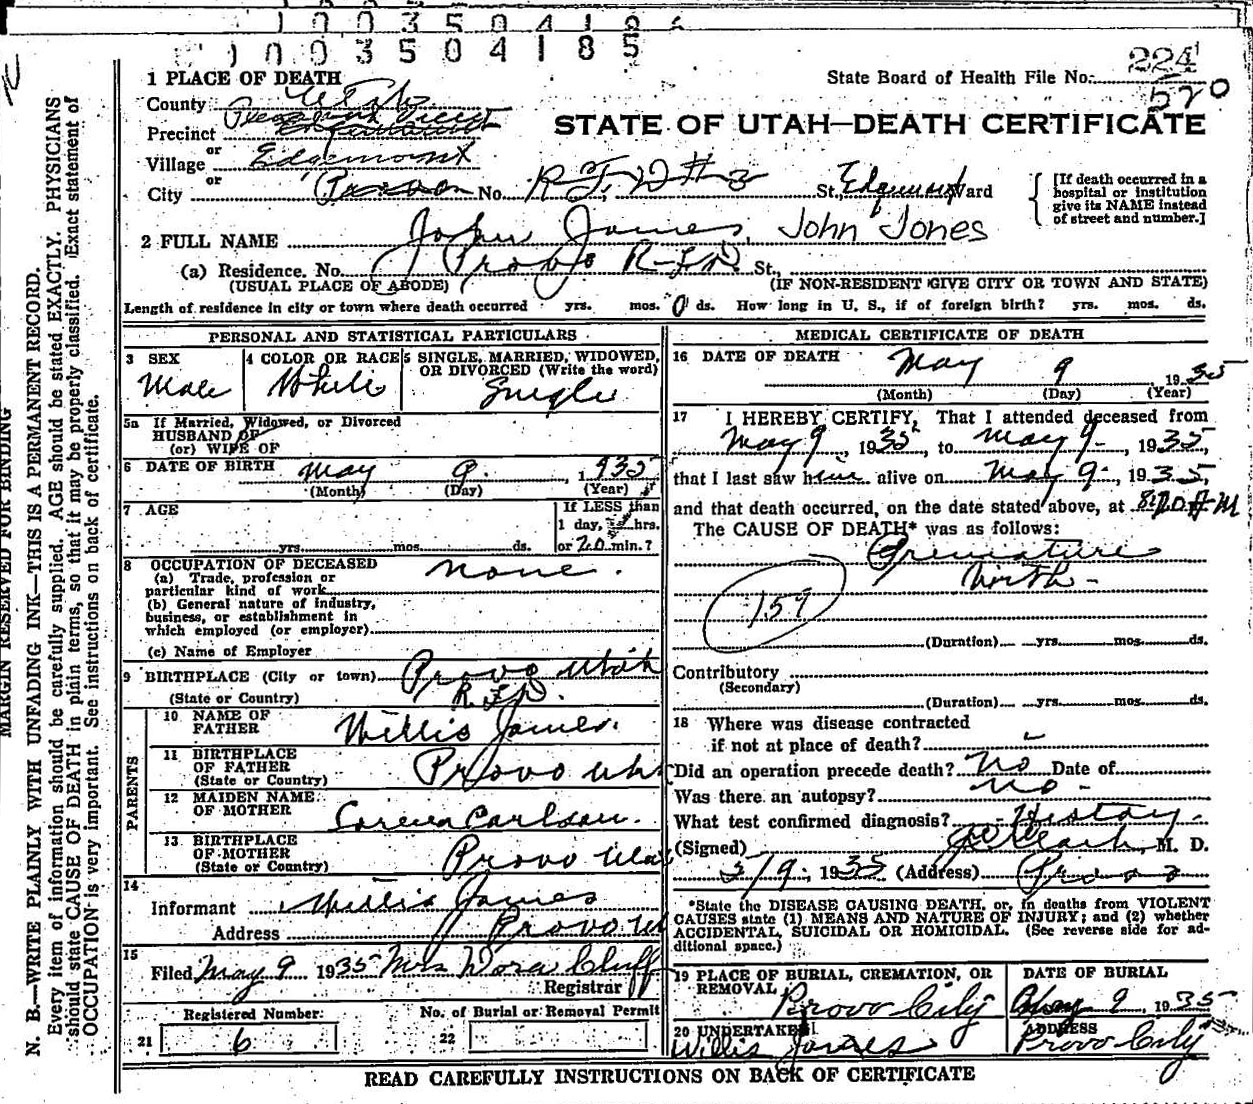 1003504185
224
State Board of Health File No. 520
1 PLACE OF DEATH
County Utah
STATE OF UTAH—DEATH CERTIFICATE
Precinct Pleasant View
or
Village Edgemont
or
City Provo No. R.F.D #3 St., Edgemont Ward
[If death occurred in a hospital or institution give its NAME instead of street and number.]
2 FULL NAME John James, John Jones
(a) Residence. No. Provo R.F.D. St.,
(USUAL PLACE OF ABODE) (IF NON-RESIDENT GIVE CITY OR TOWN AND STATE)
Length of residence in city or town where death occurred yrs. mos. 0 ds. How long in U. S., if of foreign birth? yrs. mos. ds.
PERSONAL AND STATISTICAL PARTICULARS
3 SEX
Male
4 COLOR OR RACE
White
5 SINGLE, MARRIED, WIDOWED,
OR DIVORCED (Write the word)
Single
5a If Married, Widowed, or Divorced
HUSBAND OF
(or) WIFE OF
6 DATE OF BIRTH May 9. , 1935
(Month) (Day) (Year)
7 AGE
yrs. mos. ds.
If LESS than
1 day, hrs.
or 20 min.?
8 OCCUPATION OF DECEASED none.
(a) Trade, profession or
particular kind of work
(b) General nature of industry,
business, or establishment in
which employed (or employer)
(c) Name of Employer
9 BIRTHPLACE (City or town) Provo Utah
(State or Country) R.F.D.
PARENTS
10 NAME OF
FATHER Willis James.
11 BIRTHPLACE
OF FATHER Provo Utah
(State or Country)
12 MAIDEN NAME
OF MOTHER Carlson.
13 BIRTHPLACE
OF MOTHER Provo Utah
(State or Country)
14
Informant Willis James
Address Provo Ut
15
Filed May 9 1935 Mrs Dora Cluff
Registrar
Registered Number:
21 6
No. of Burial or Removal Permit
22
MEDICAL CERTIFICATE OF DEATH
16 DATE OF DEATH May 9 1935
(Month) (Day) (Year)
17 I HEREBY CERTIFY, That I attended deceased from
May 9 , 1935, to May 9 , 1935,
that I last saw him alive on May 9 , 1935,
and that death occurred, on the date stated above, at
The CAUSE OF DEATH* was as follows:
Premature
birth
159
(Duration) yrs. mos. ds.
Contributory
(Secondary)
(Duration) yrs. mos. ds.
18 Where was disease contracted
if not at place of death?
Did an operation precede death? No Date of
Was there an autopsy? No
What test confirmed diagnosis? History.
(Signed) M. D.
5/9, 1935 (Address) Provo
*State the DISEASE CAUSING DEATH, or, in deaths from VIOLENT
CAUSES state (1) MEANS AND NATURE OF INJURY; and (2) whether
ACCIDENTAL, SUICIDAL OR HOMICIDAL. (See reverse side for ad-
ditional space.)
19 PLACE OF BURIAL, CREMATION, OR
REMOVAL
Provo City
DATE OF BURIAL
May 9 1935
20 UNDERTAKER
Willis James
ADDRESS
Provo City
READ CAREFULLY INSTRUCTIONS ON BACK OF CERTIFICATE
MARGIN RESERVED FOR BINDING
N. B.—WRITE PLAINLY WITH UNFADING INK—THIS IS A PERMANENT RECORD.
Every item of information should be carefully supplied. AGE should be stated EXACTLY. PHYSICIANS
should state CAUSE OF DEATH in plain terms, so that it may be properly classified. Exact statement of
OCCUPATION is very important. See instructions on back of certificate.